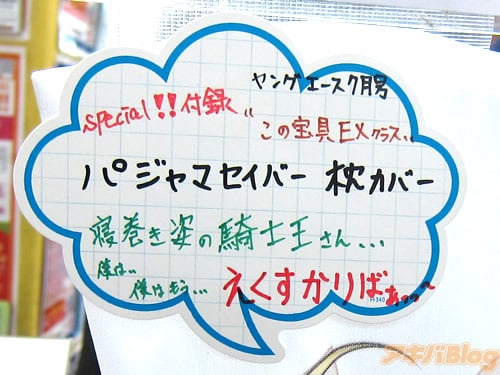 ヤングエース7月号
special!!付録
“この宝具EXクラス”
パジャマセイバー 枕カバー
寝巻き姿の騎士王さん...
僕は..
僕はもう... えくすかりばぁっっ〜
H340
アキバBlog